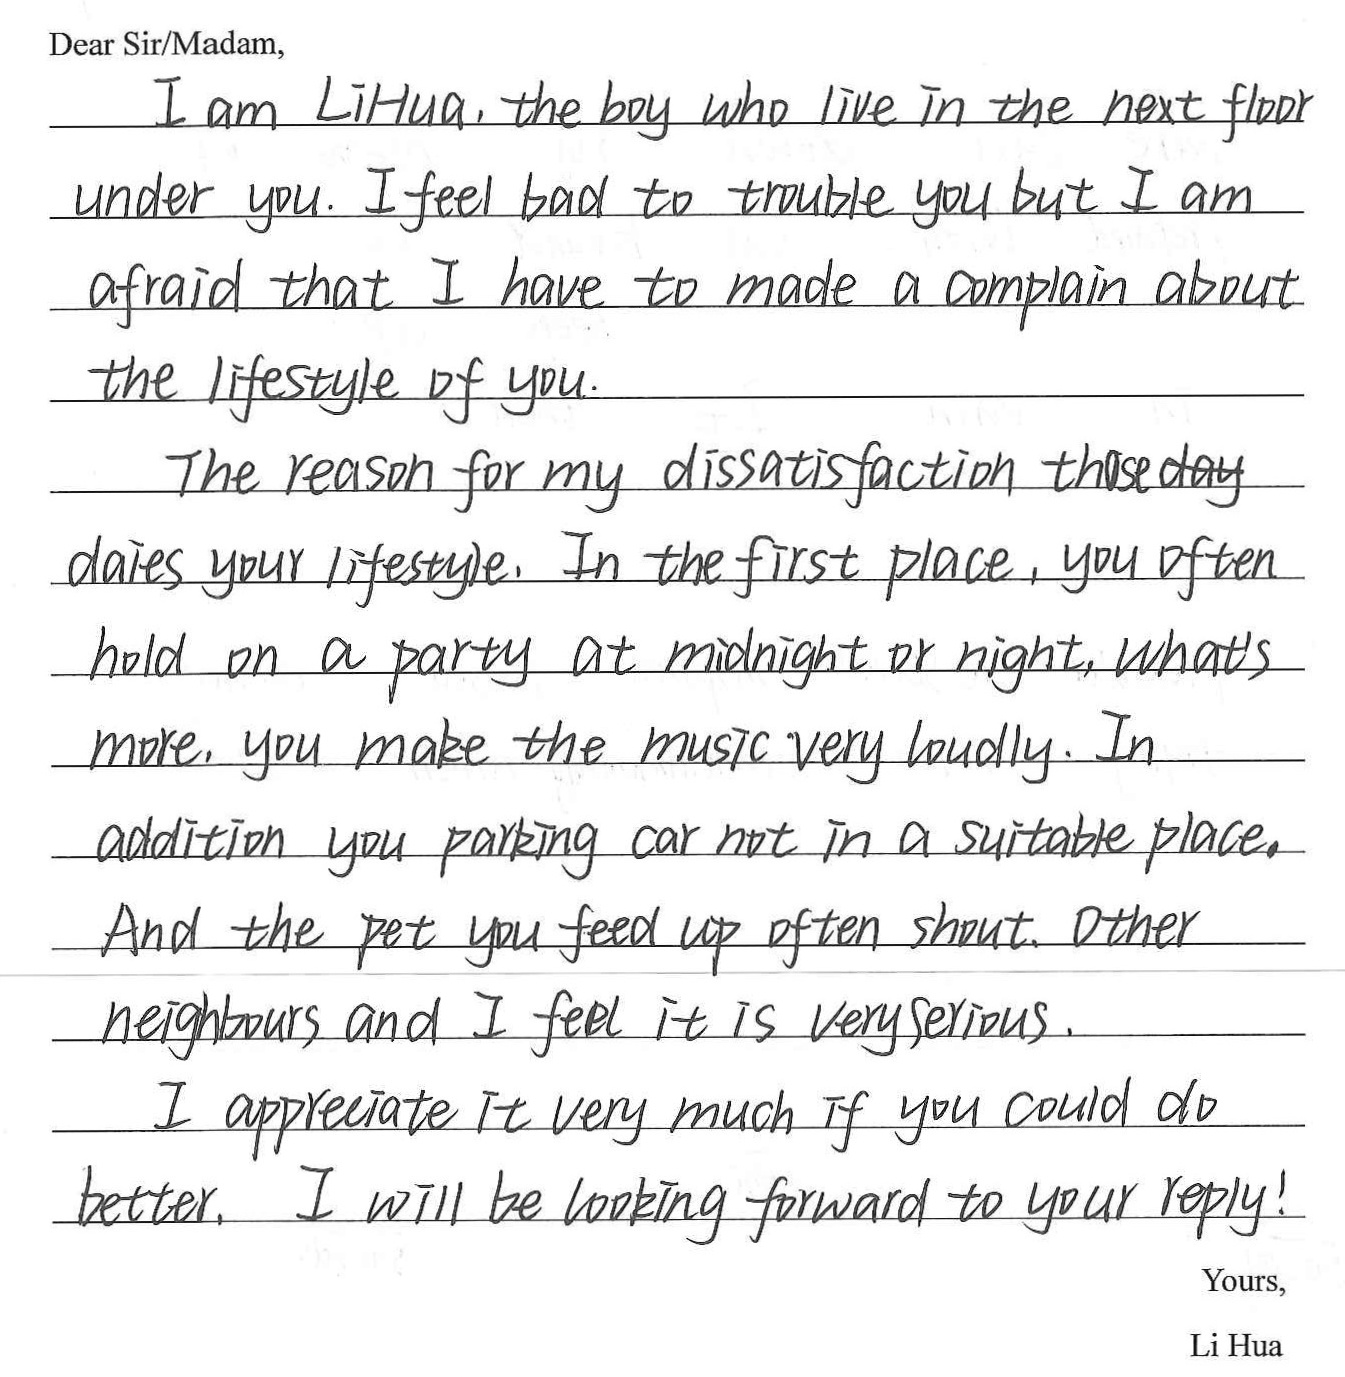 Dear Sir/Madam,
I am LiHua, the boy who live in the next floor
under you. I feel bad to trouble you but I am
afraid that I have to made a complain about
the lifestyle of you.
The reason for my dissatisfaction those day
daies your lifestyle. In the first place, you often
hold on a party at midnight or night, what's
more, you make the music very loudly. In
addition you parking car not in a suitable place.
And the pet you feed up often shout. Other
neighbours and I feel it is very serious.
I appreciate it very much if you could do
better. I will be looking forward to your reply!
Yours,
Li Hua